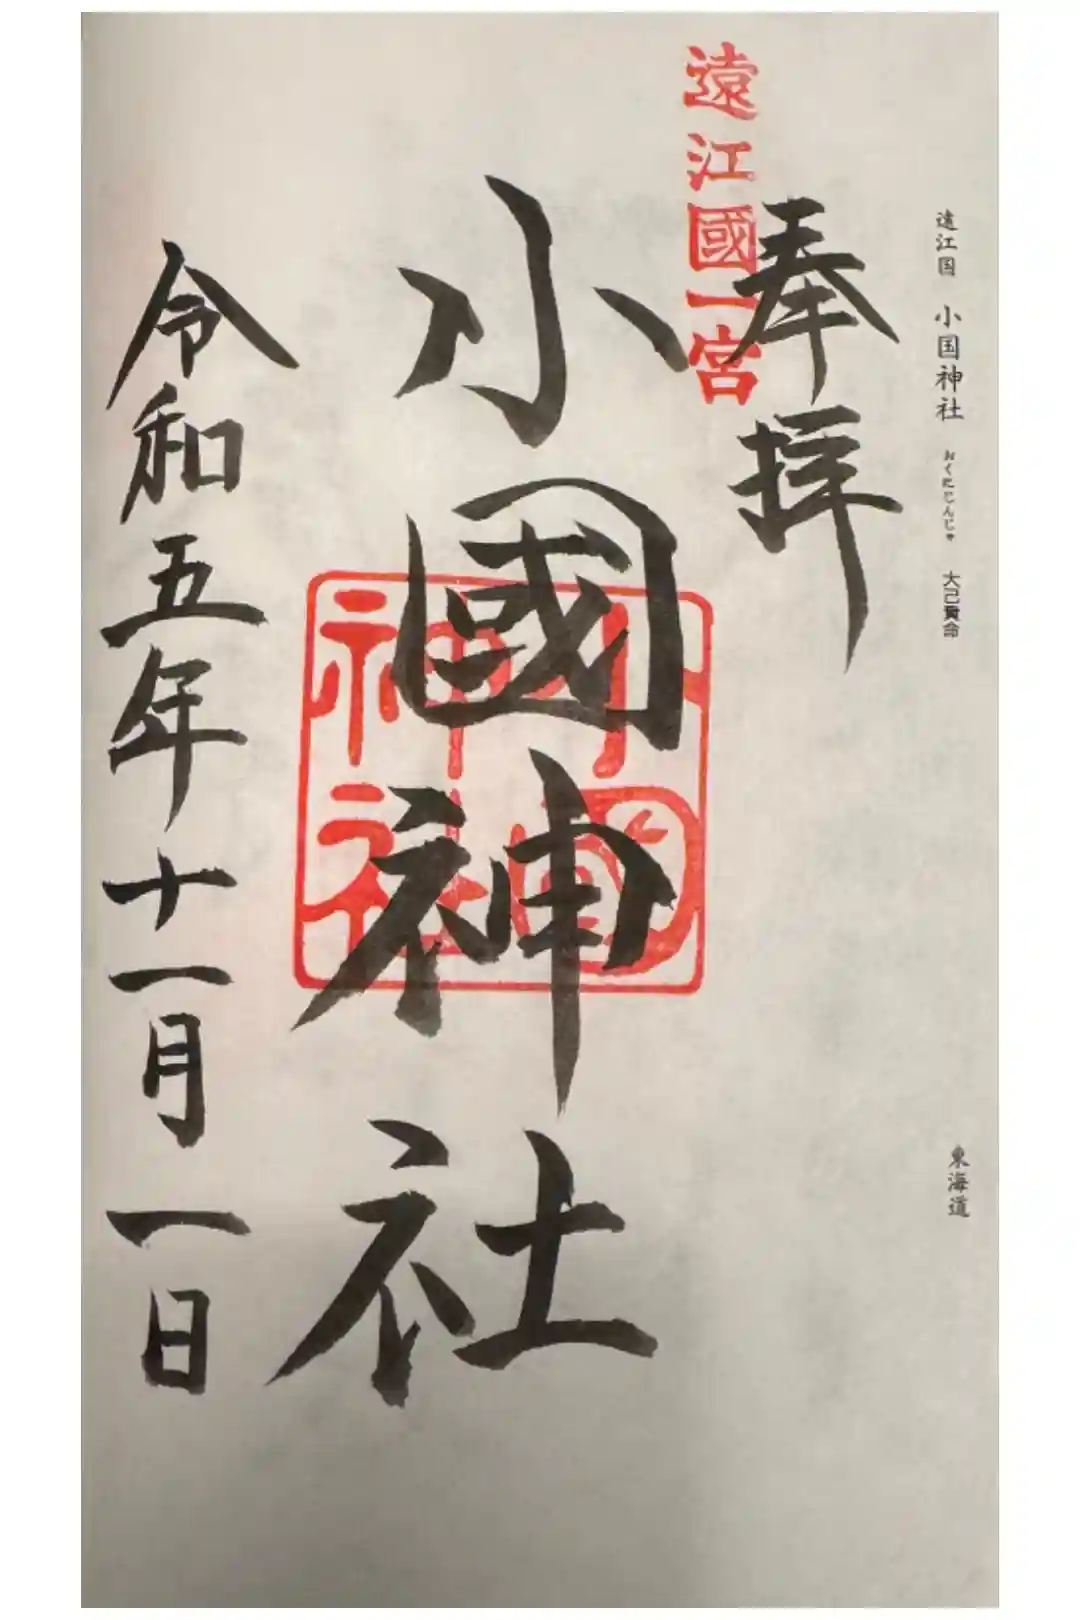 遠江国 小国神社 おくにじんじゃ 大己貴命
東海道
遠江國一宮
奉拝
小國神社
小國
神社
令和五年十一月一日